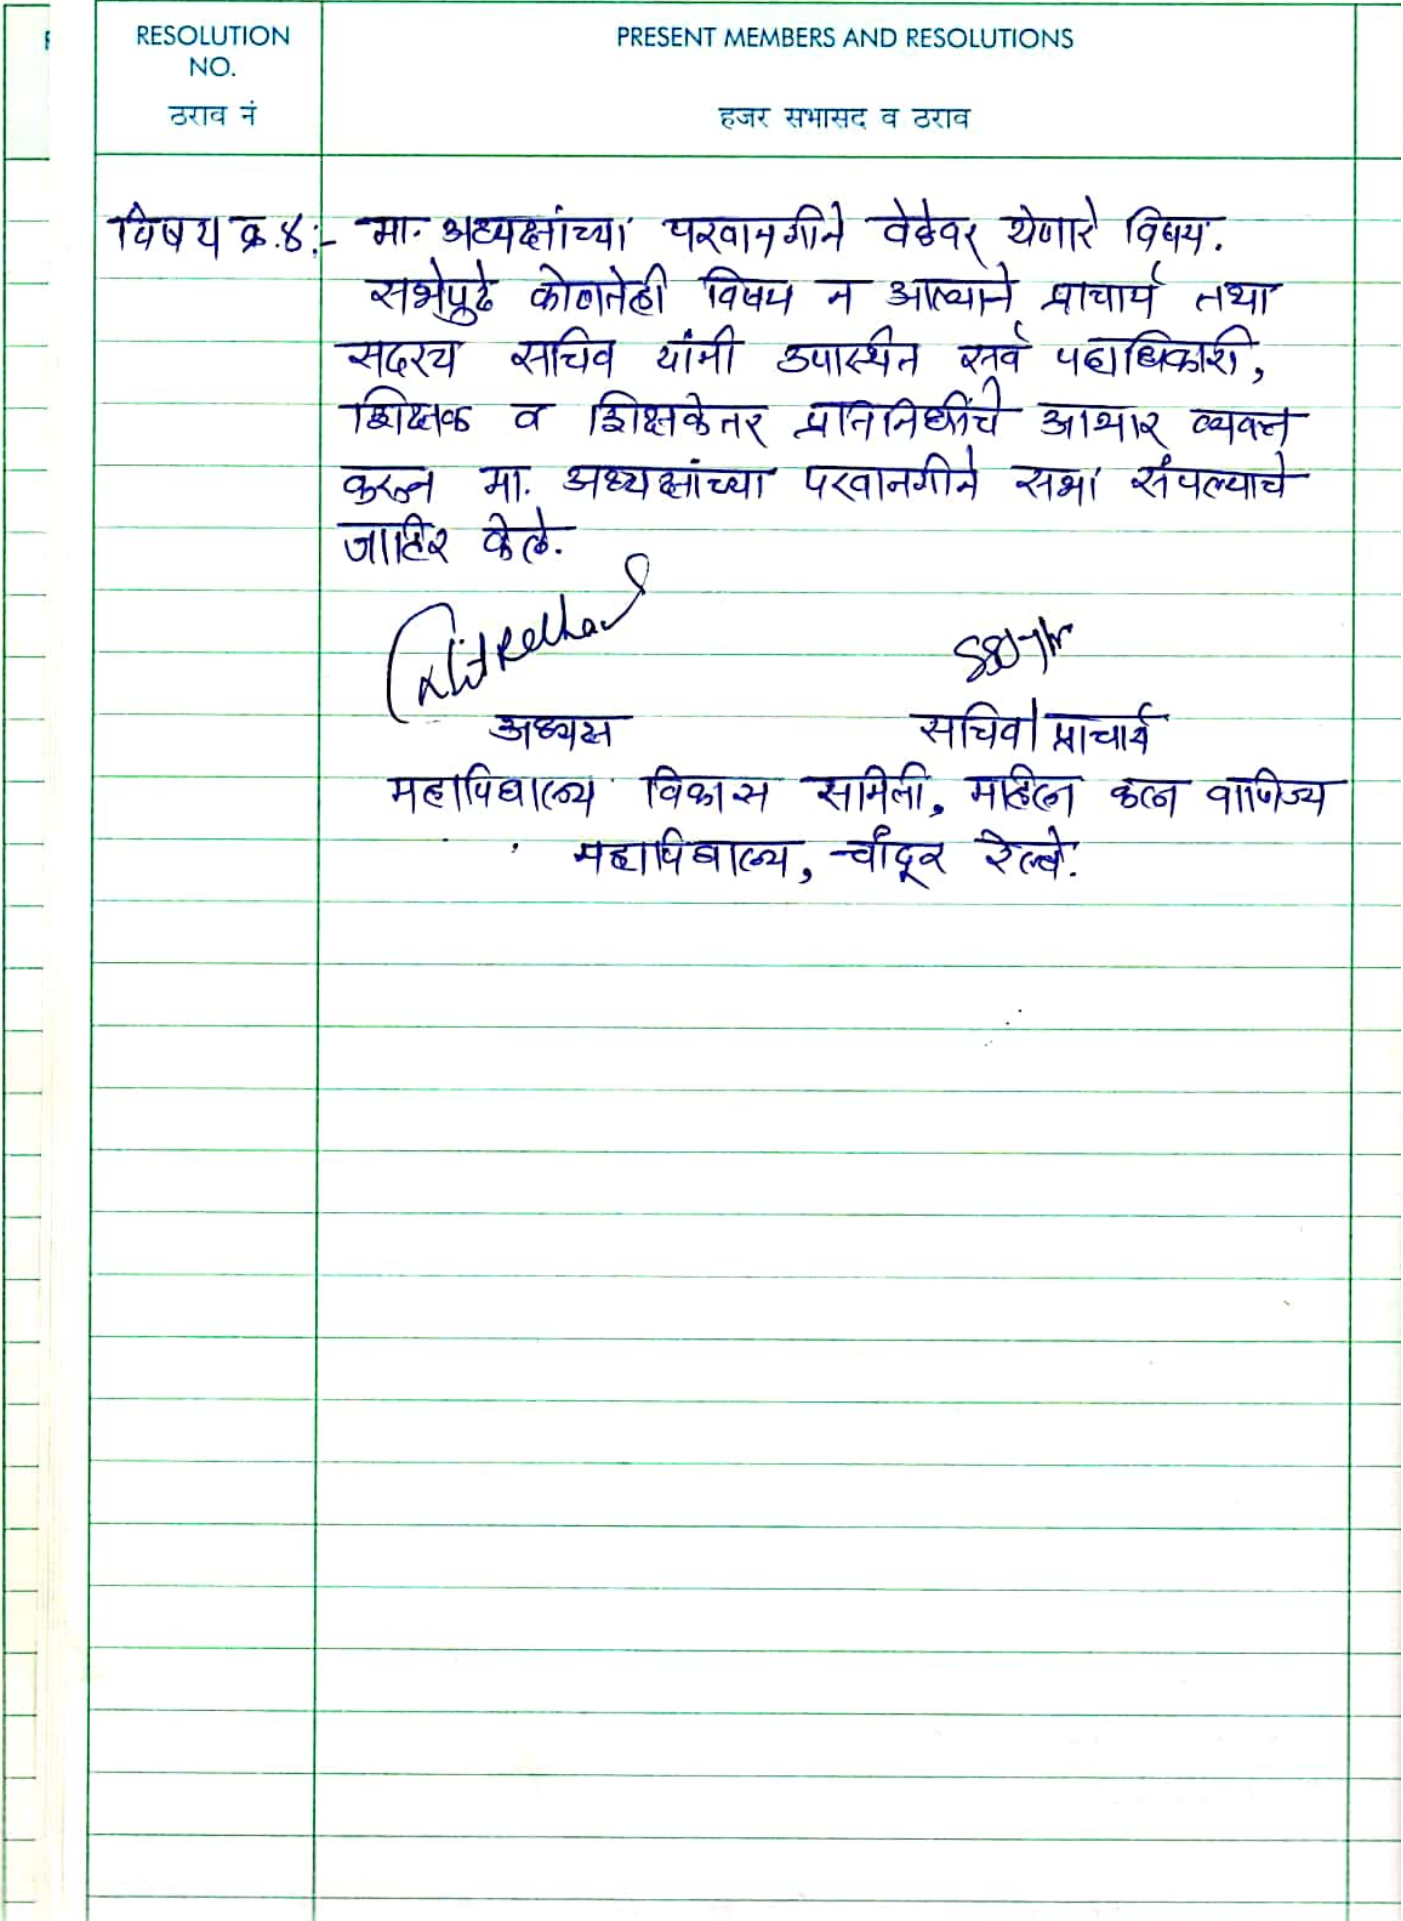 RESOLUTION NO.
ठराव नं
PRESENT MEMBERS AND RESOLUTIONS
हजर सभासद व ठराव
विषय क्र.४:- मा. अध्यक्षांच्या परवानगीने वेळेवर येणारे विषय.
सभेपुढे कोणतेही विषय न आल्याने प्राचार्य तथा
सदस्य सचिव यांनी उपास्थित सर्व पदाधिकारी,
शिक्षक व शिक्षकेतर प्रतिनिधींचे आभार व्यक्त
करून मा. अध्यक्षांच्या परवानगीने सभा संपल्याचे
जाहिर केले.
अध्यक्ष
सचिव/प्राचार्य
महाविद्यालय विकास समिती, महिला कला वाणिज्य
महाविद्यालय, चांदूर रेल्वे.